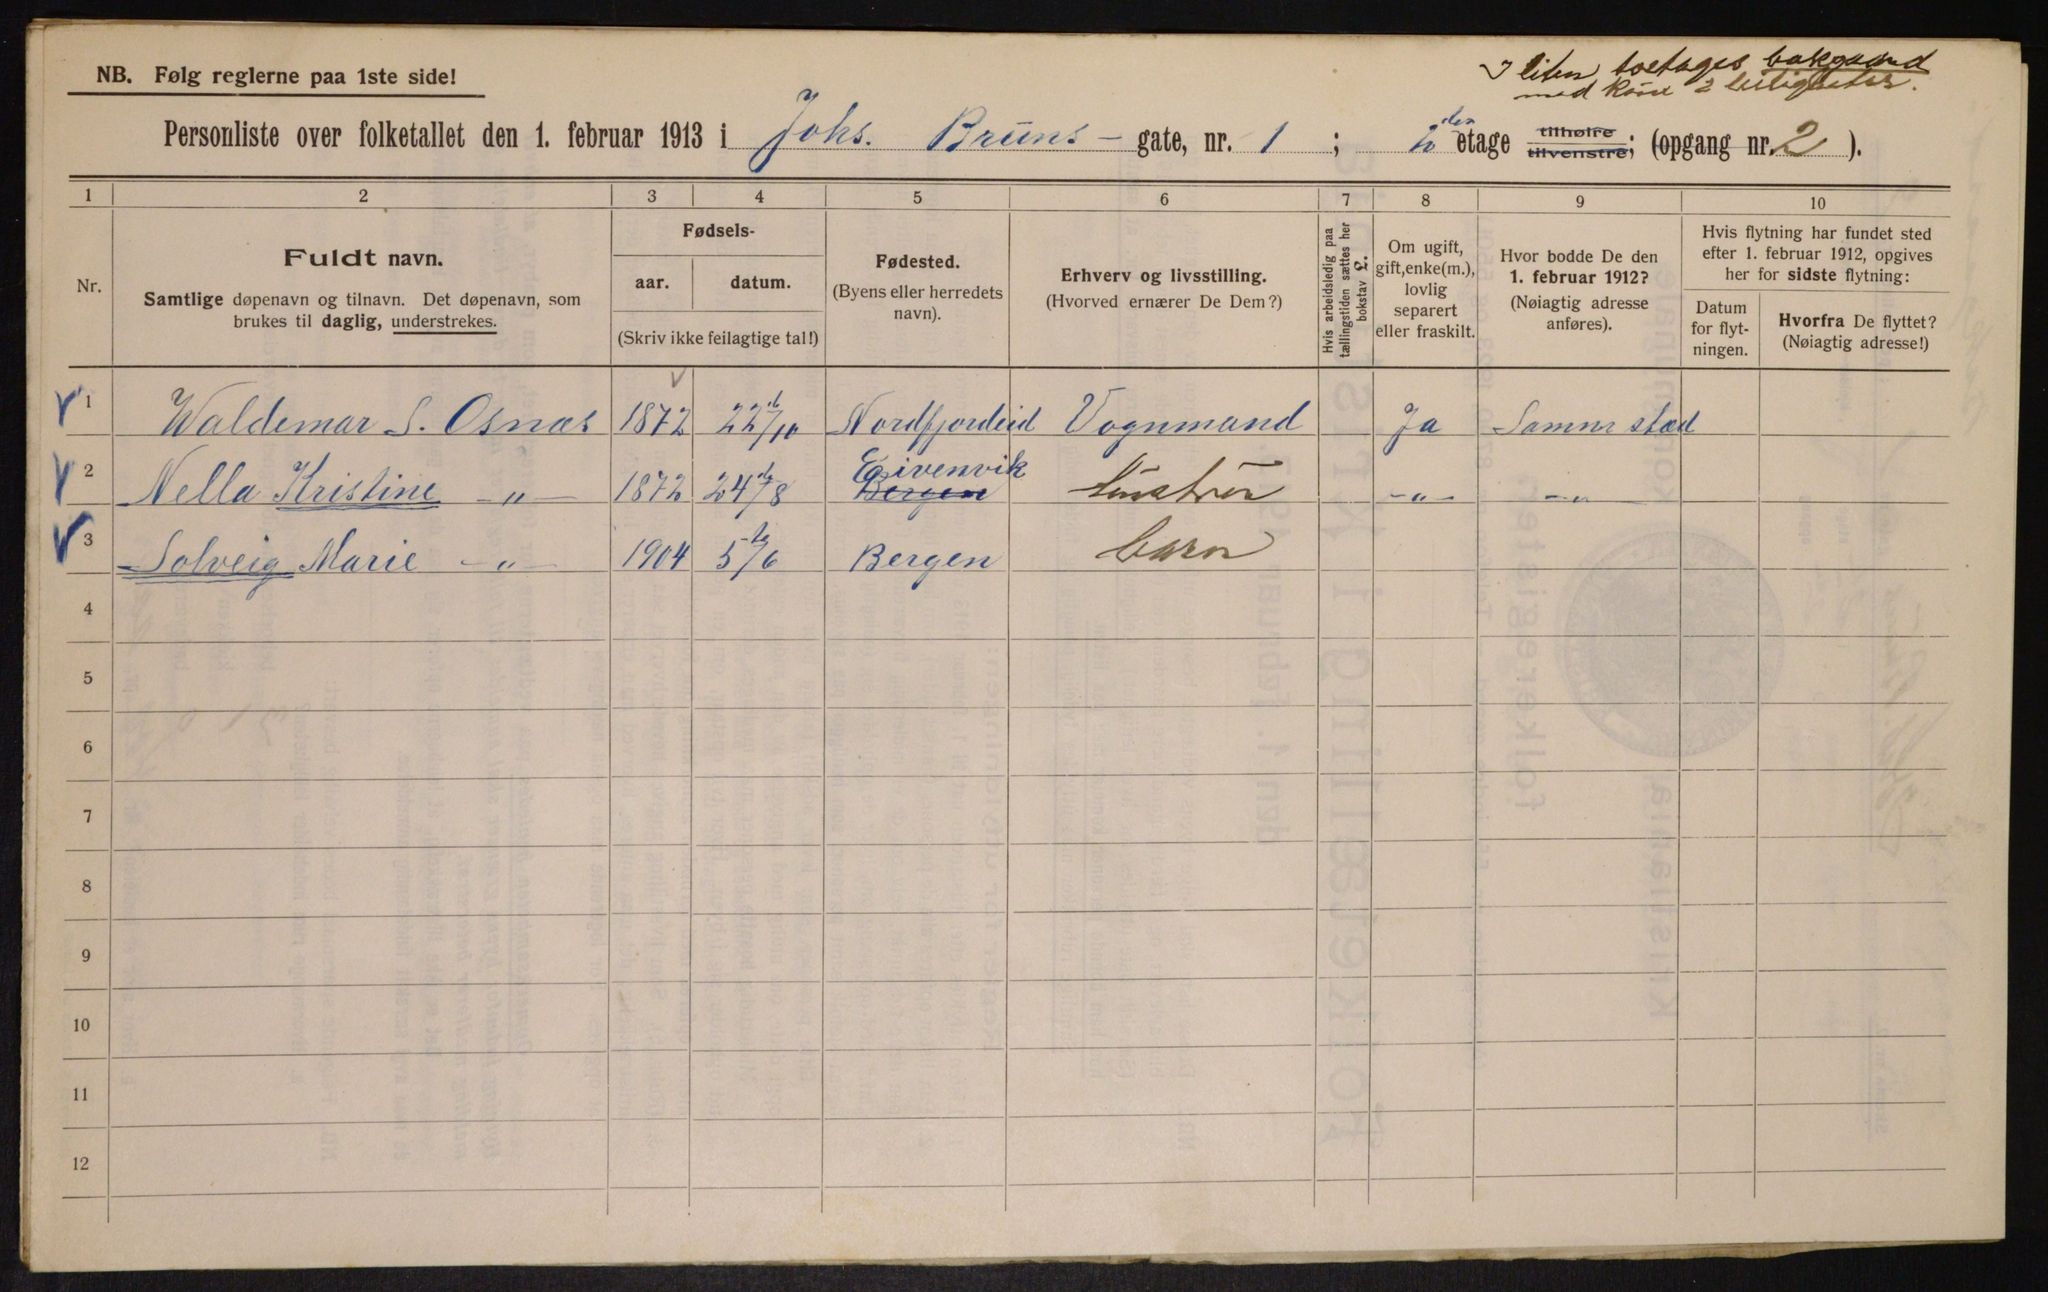 I liten toetages bakgaard
med kun 2 leiligheter.
NB. Følg reglerne paa 1ste side!
Personliste over folketallet den 1. februar 1913 i Johs. Bruns - gate, nr. 1 ; 2 den etage tilhøire tilvenstre; (opgang nr. 2 ).
1 2 3 4 5 6 7 8 9 10
Nr.
Fuldt navn.
Samtlige døpenavn og tilnavn. Det døpenavn, som
brukes til daglig, understrekes.
Fødsels-
aar. datum.
(Skriv ikke feilagtige tal!)
Fødested.
(Byens eller herredets
navn).
Erhverv og livsstilling.
(Hvorved ernærer De Dem?)
Hvis arbeidsledig paa
tællingstiden sættes her
bokstav L.
Om ugift,
gift, enke(m.),
lovlig
separert
eller fraskilt.
Hvor bodde De den
1. februar 1912?
(Nøiagtig adresse
anføres).
Hvis flytning har fundet sted
efter 1. februar 1912, opgives
her for sidste flytning:
Datum
for flyt-
ningen.
Hvorfra De flyttet?
(Nøiagtig adresse!)
1 Waldemar S. Osnæs 1872 22/10 Nordfjordeid Vognmand Ja Samme sted
2 Nella Kristine -„- 1872 24/8 Eivenvik Bergen hustru -„- -„-
3 Solveig Marie -„- 1904 5/6 Bergen barn
4
5
6
7
8
9
10
11
12